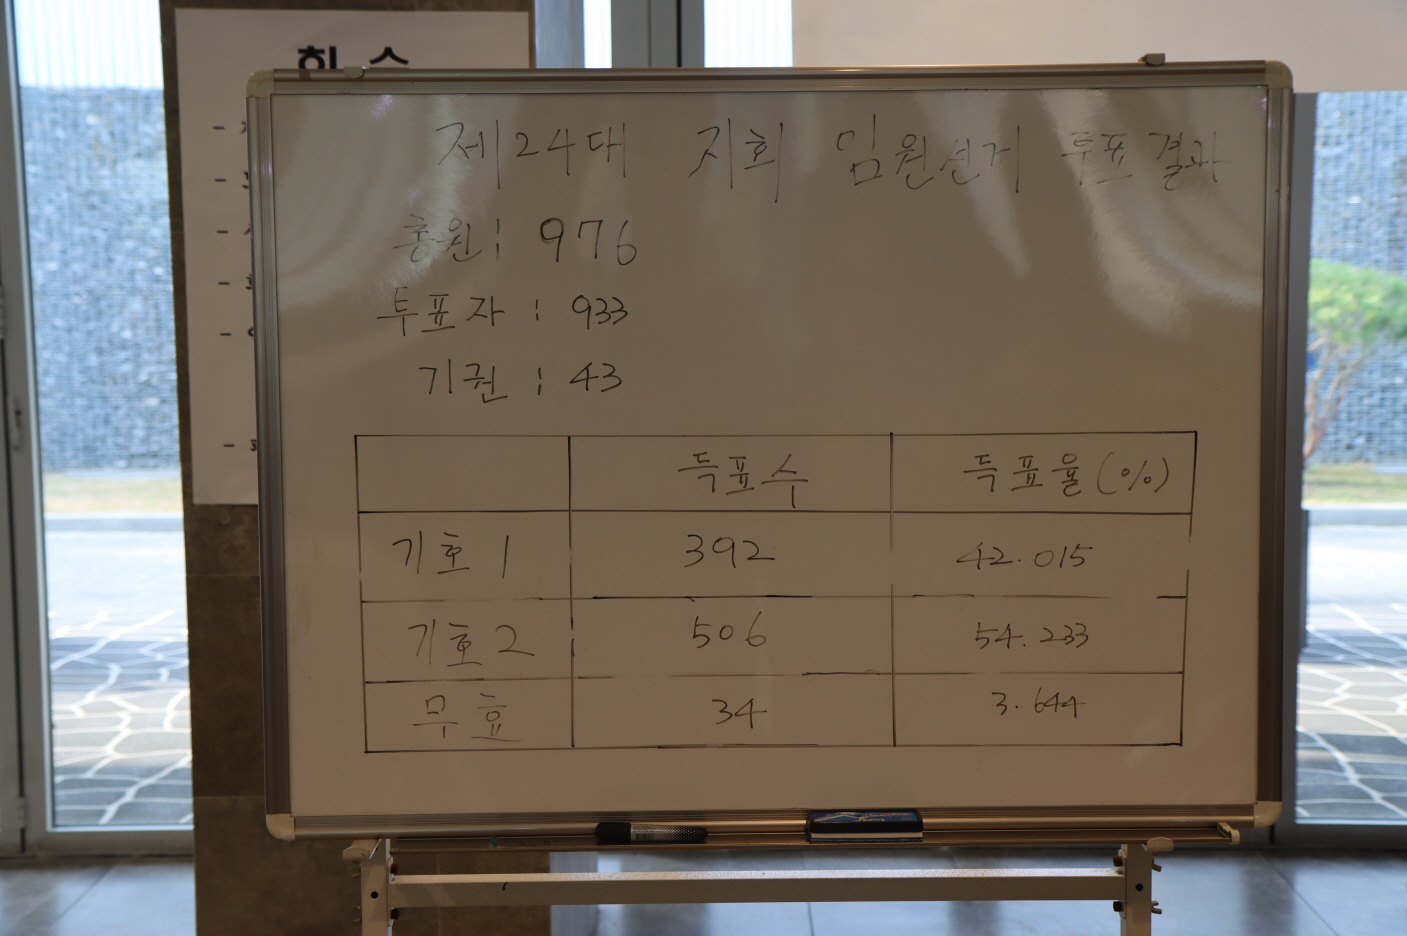 제24대 지회 임원선거 투표결과
총원: 976
투표자 : 933
기권 : 43
득표수 득표율(%)
기호 1 392 42.015
기호 2 506 54.233
무효 34 3.644